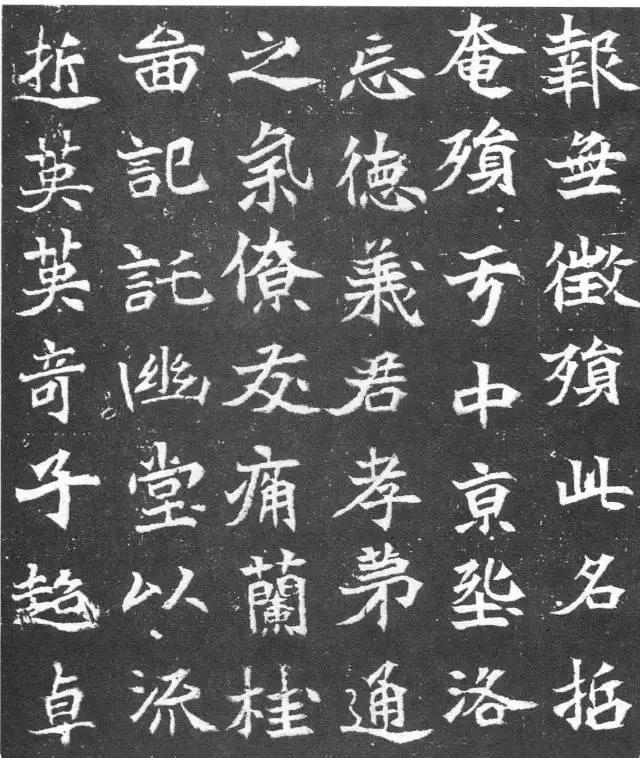 報無徵殞此名哲
奄殞于中京埊洛
忘德義君孝弟通
之氣僚友痛蘭桂
啚記託幽堂以流
逝英英奇子超卓